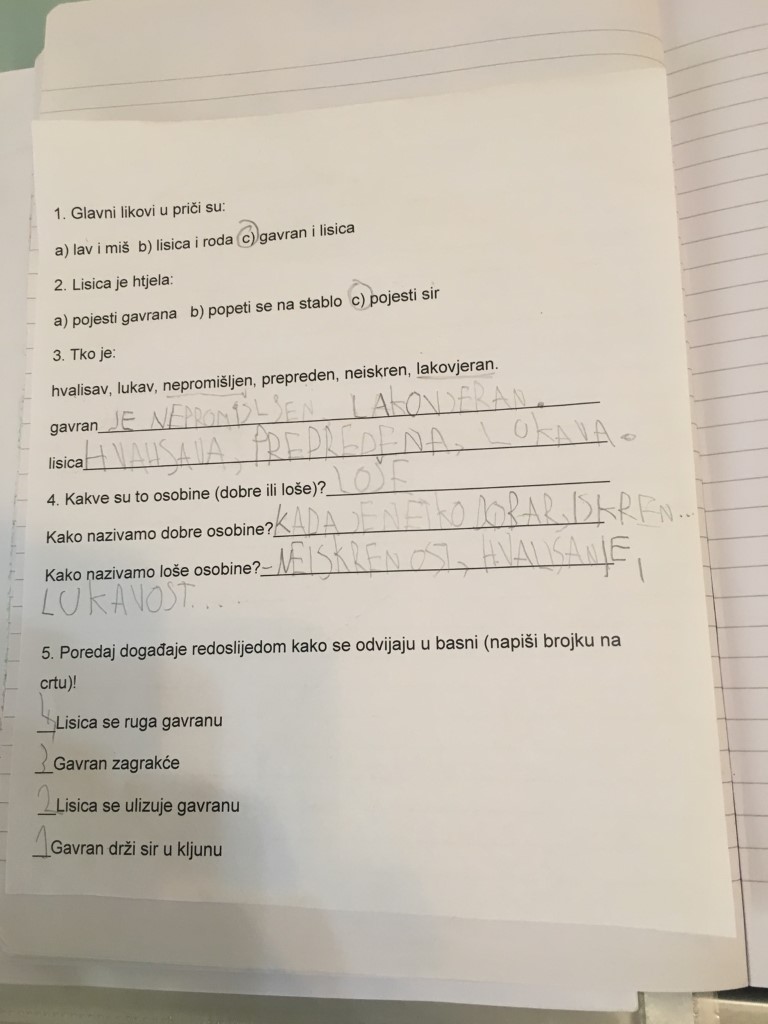 1. Glavni likovi u priči su:
a) lav i miš b) lisica i roda c) gavran i lisica
2. Lisica je htjela:
a) pojesti gavrana b) popeti se na stablo c) pojesti sir
3. Tko je:
hvalisav, lukav, nepromišljen, prepreden, neiskren, lakovjeran.
gavran JE NEPROMIŠLJEN LAKOVJERAN.
lisica HVALISAVA, PREPREDENA, LUKAVA.
4. Kakve su to osobine (dobre ili loše)? LOŠE
Kako nazivamo dobre osobine? KADA JE NETKO DOBAR, ISKREN...
Kako nazivamo loše osobine? - NEISKRENOST, HVALISANJE,
LUKAVOST....
5. Poredaj događaje redoslijedom kako se odvijaju u basni (napiši brojku na
crtu)!
4 Lisica se ruga gavranu
3 Gavran zagrakće
2 Lisica se ulizuje gavranu
1 Gavran drži sir u kljunu